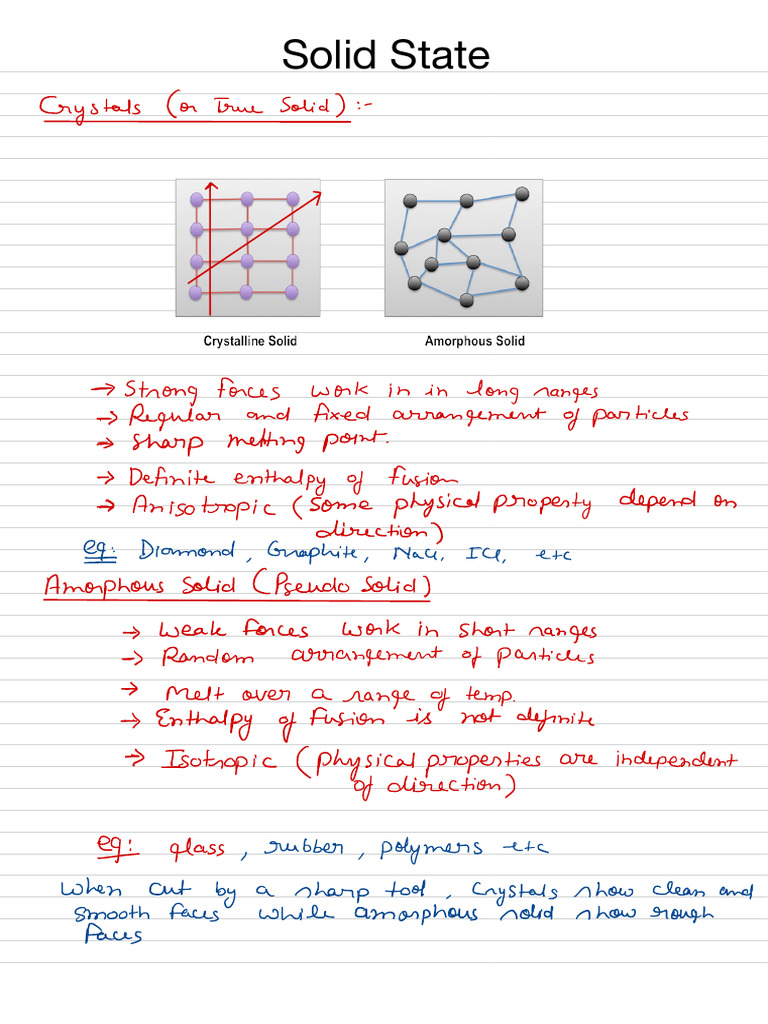 Solid State
Crystals (or True Solid) :-
Crystalline Solid
Amorphous Solid
→ Strong forces work in in long ranges
→ Regular and fixed arrangement of particles
→ sharp melting point.
→ Definite enthalpy of fusion
→ Anisotropic (some physical property depend on
direction)
eg: Diamond, Graphite, NaCl, ICl, etc
Amorphous Solid (Pseudo Solid)
→ weak forces work in short ranges
→ Random arrangement of particles
→ Melt over a range of temp.
→ Enthalpy of fusion is not definite
→ Isotropic (physical properties are independent
of direction)
eg: glass, rubber, polymers etc
when cut by a sharp tool, crystals show clean and
smooth faces while amorphous solid show rough
faces